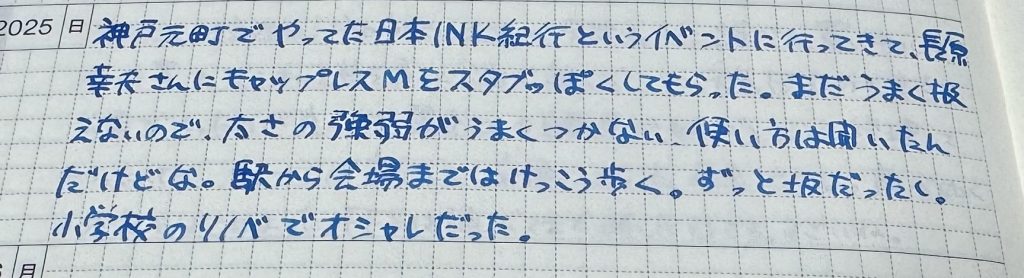 2025 日 神戸元町でやってた日本INK紀行というイベントに行ってきて、長原
幸夫さんにキャップレスMをスタブっぽくしてもらった。まだうまく扱
えないので、太さの強弱がうまくつかない、使い方は聞いたん
だけどな。駅から会場まではけっこう歩く。ずっと坂だったし。
小学校のリノベでオシャレだった。
月